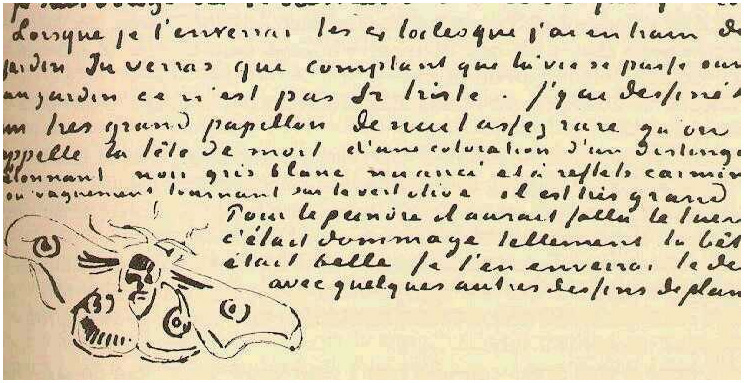 Lorsque je t'enverrai les 4 toiles que j'ai en train de
jardin Tu verras que comptant que la vie se passe sur
au jardin ce n'est pas si triste. J'y ai dessiné
un très grand papillon de nuit assez rare qu'on
appelle la tête de mort d'une coloration d'un distingué
étonnant noir gris blanc nuancé et à reflets carmin
ou vaguement tournant sur le vert olive il est très grand
Pour le peindre il aurait fallu le tuer
c'était dommage tellement la bête
était belle Je t'en enverrai le de
avec quelques autres dessins de plan